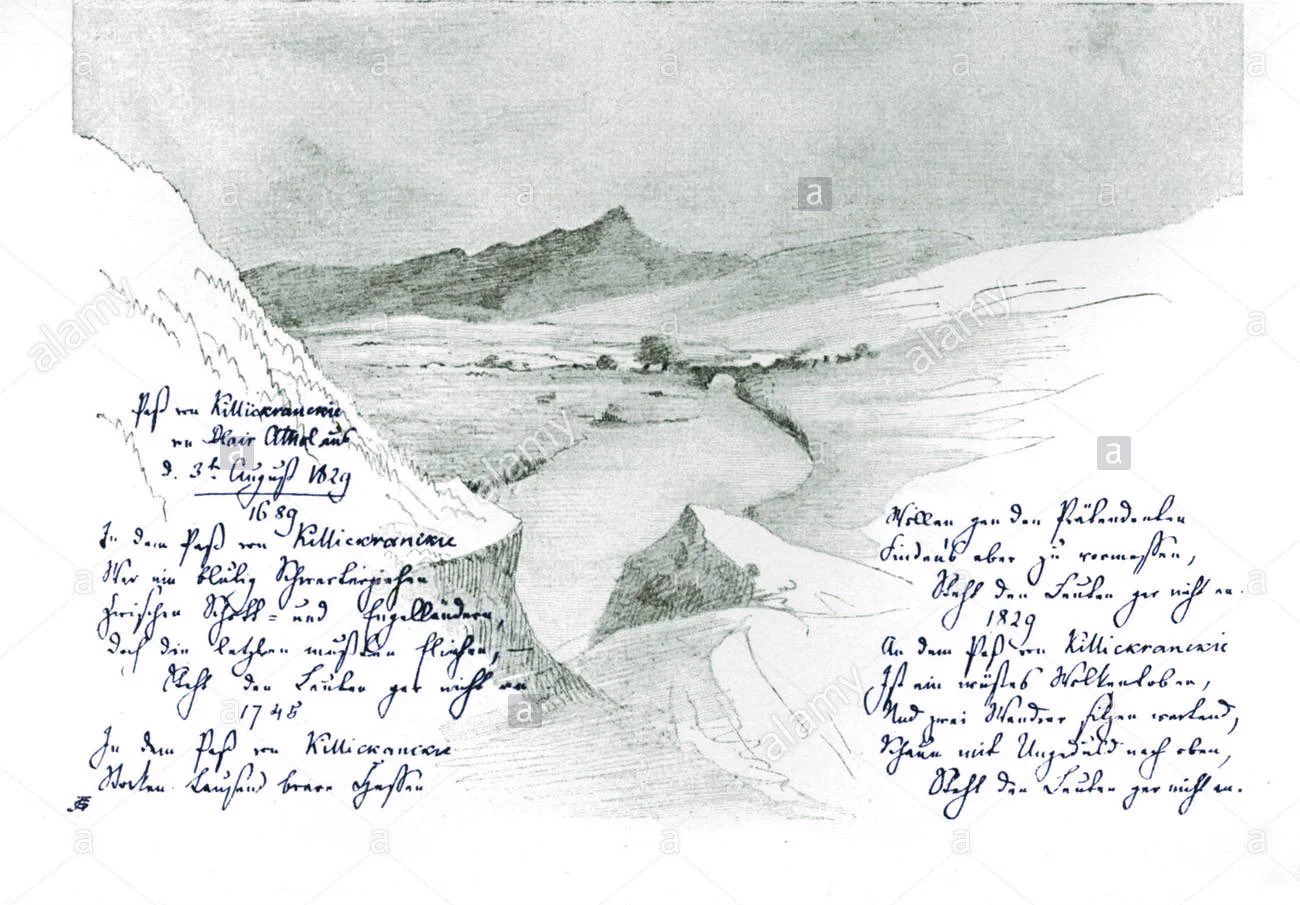 Paß von Killickranckie
von Blair Athol aus
d. 3t August 1829
1689
In dem Paß von Killickranckie
War ein blutig Schwerterziehen
Zwischen Schott= und Engelländern,
Doch die letzten mußten fliehen, —
Steht den Leuten gar nicht an
1745
In dem Paß von Killickranckie
Stocken tausend brave Hessen
Wollen gen den Prätendenten
Finden's aber zu vermessen,
Steht den Leuten gar nicht an.
1829
An dem Paß von Killickranckie
Ist ein wüstes Wolkentoben,
Und zwei Wandrer sitzen wartend,
Schaun mit Ungeduld nach oben,
Steht den Leuten gar nicht an.
alamy
alamy
alamy
alamy
alamy